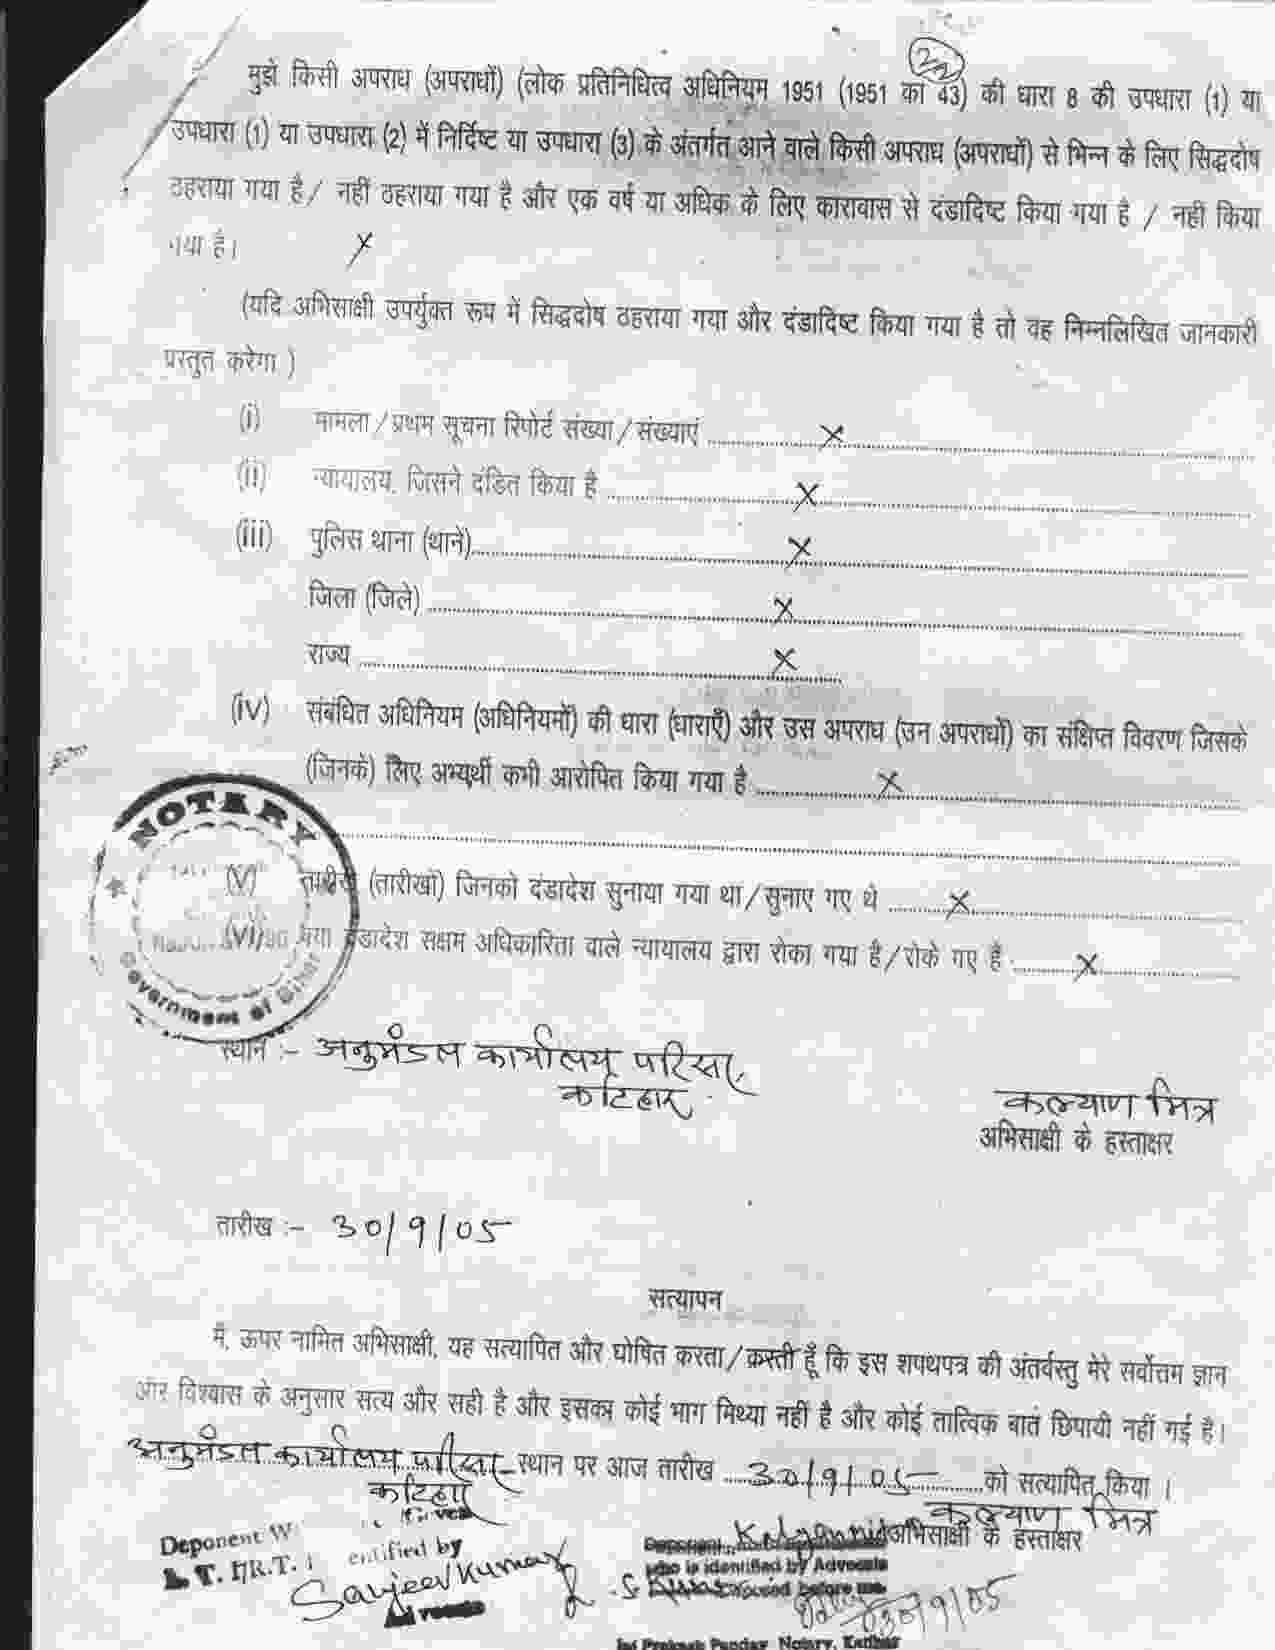 मुझे किसी अपराध (अपराधों) (लोक प्रतिनिधित्व अधिनियम 1951 (1951 का 43) की धारा 8 की उपधारा (1) या
उपधारा (1) या उपधारा (2) में निर्दिष्ट या उपधारा (3) के अंतर्गत आने वाले किसी अपराध (अपराधों) से भिन्न के लिए सिद्धदोष
ठहराया गया है / नहीं ठहराया गया है और एक वर्ष या अधिक के लिए कारावास से दंडादिष्ट किया गया है / नहीं किया
गया है। X
(यदि अभिसाक्षी उपर्युक्त रूप में सिद्धदोष ठहराया गया और दंडादिष्ट किया गया है तो वह निम्नलिखित जानकारी
प्रस्तुत करेगा )
(i) मामला / प्रथम सूचना रिपोर्ट संख्या / संख्याएं X
(ii) न्यायालय, जिसने दंडित किया है X
(iii) पुलिस थाना (थाने) X
जिला (जिले) X
राज्य X
(iv) संबंधित अधिनियम (अधिनियमों) की धारा (धाराएँ) और उस अपराध (उन अपराधों) का संक्षिप्त विवरण जिसके
(जिनके) लिए अभ्यर्थी कभी आरोपित किया गया है X
NOTARY
(V) तारीख (तारीखों) जिनको दंडादेश सुनाया गया था / सुनाए गए थे X
(VI) क्या दंडादेश सक्षम अधिकारिता वाले न्यायालय द्वारा रोका गया है / रोके गए हैं X
Government of Bihar
स्थान :- अनुमंडल कार्यालय परिसर,
कटिहार.
कल्याण मित्र
अभिसाक्षी के हस्ताक्षर
तारीख :- 30/9/05
सत्यापन
मैं, ऊपर नामित अभिसाक्षी, यह सत्यापित और घोषित करता / करती हूँ कि इस शपथपत्र की अंतर्वस्तु मेरे सर्वोत्तम ज्ञान
और विश्वास के अनुसार सत्य और सही है और इसका कोई भाग मिथ्या नहीं है और कोई तात्विक बात छिपायी नहीं गई है।
अनुमंडल कार्यालय परिसर स्थान पर आज तारीख 30/9/05 को सत्यापित किया ।
कटिहार
कल्याण मित्र
अभिसाक्षी के हस्ताक्षर
Deponent
L.T.I/R.T.I
entified by
Sanjeev Kumar
Deponent
who is identified by Advocate
before me
30/9/05
Jai Prakash Panday, Notary, Katihar